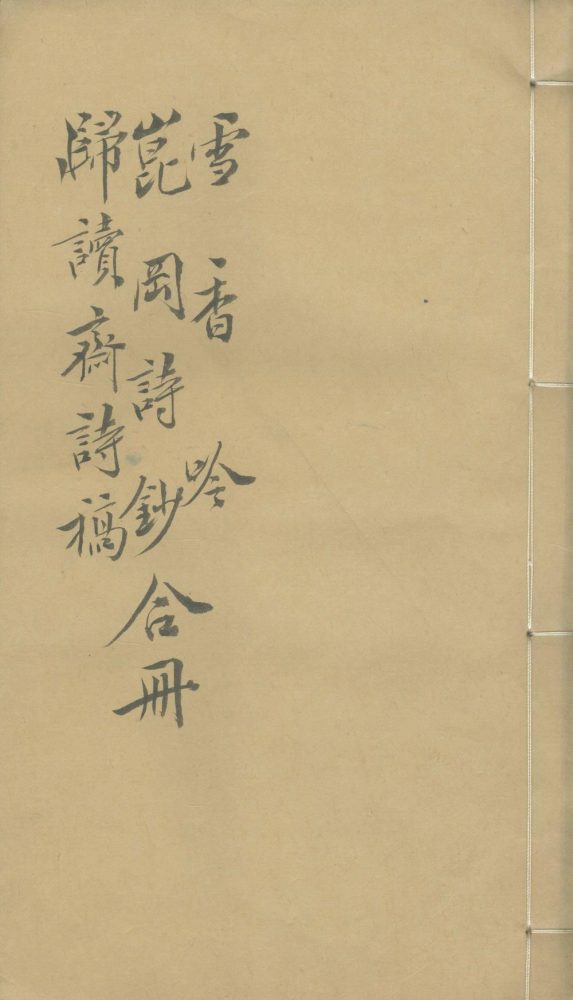 雪香吟
崑岡詩鈔合冊
歸讀齋詩稿